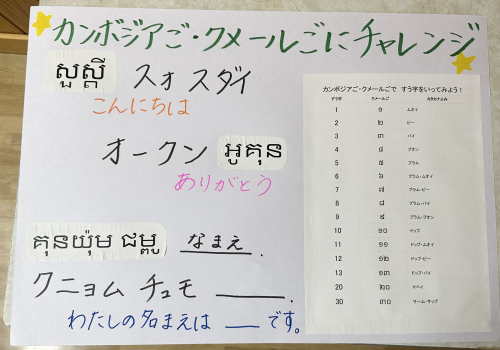 カンボジアご・クメールごにチャレンジ
សួស្តី スォ スダイ
こんにちは
オークン អូគុន
ありがとう
គុនយ៉ុម ជម្ពូ なまえ.
クニョム チュモ ______.
わたしの名まえは ___ です。
カンボジアご・クメールごで すう字をいってみよう!
すう字 クメールご カタカナよみ
1 ១ ムオイ
2 ២ ピー
3 ៣ バイ
4 ៤ ブオン
5 ៥ プラム
6 ៦ プラム・ムオイ
7 ៧ プラム・ピー
8 ៨ プラム・バイ
9 ៩ プラム・ブオン
10 ១០ ドップ
11 ១១ ドップ・ムオイ
12 ១២ ドップ・ピー
13 ១៣ ドップ・バイ
20 ២០ マペイ
30 ៣០ サーム・サップ